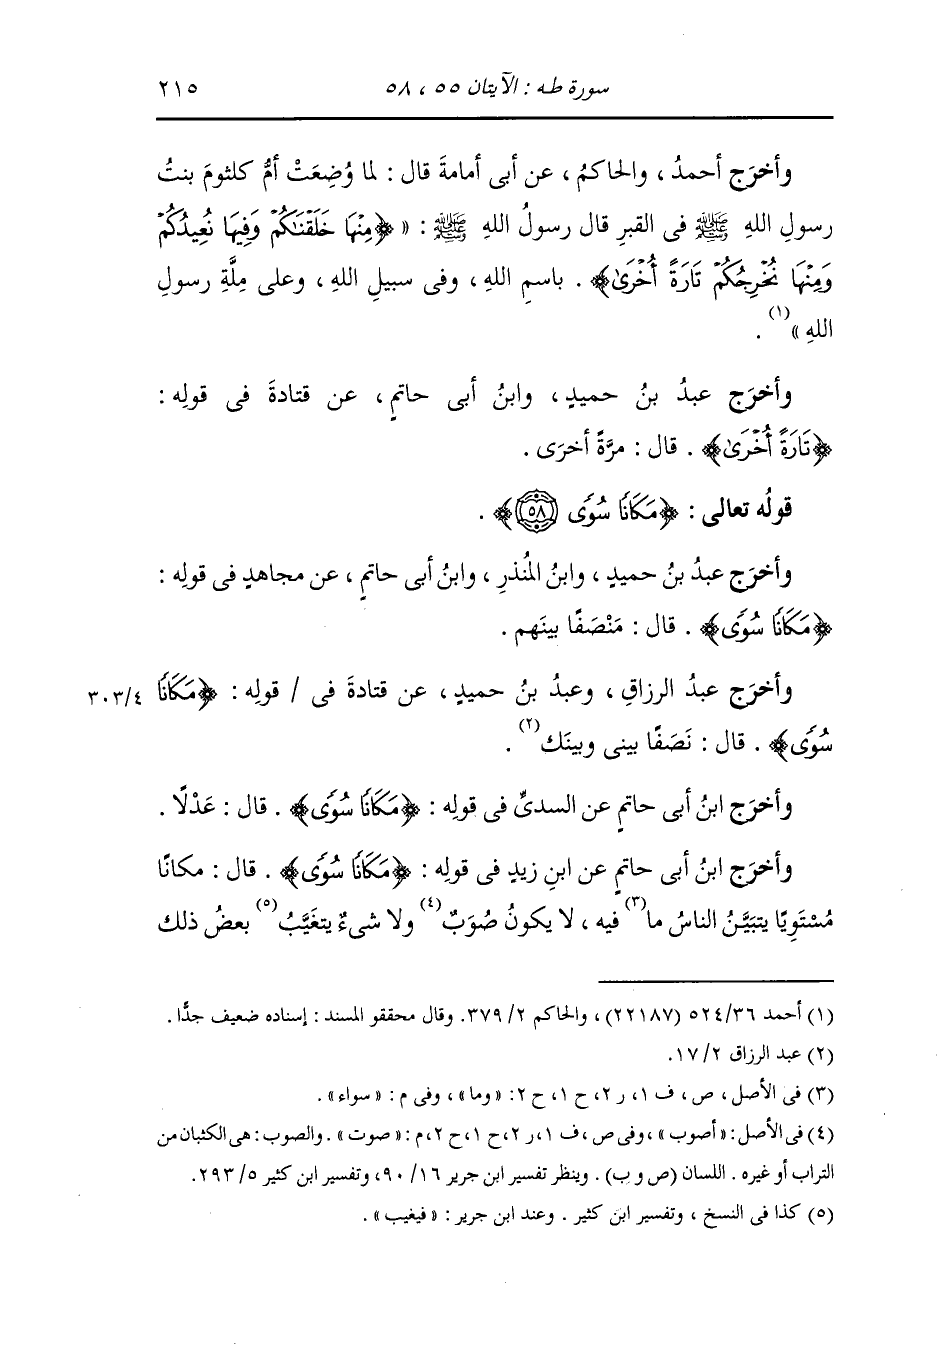 سورة طه : الآيتان ٥٥ ، ٥٨ ٢١٥
وأخرَج أحمدُ ، والحاكمُ ، عن أبى أمامةَ قال : لما وُضِعَتْ أمُّ كلثومَ بنتُ
رسولِ اللهِ ﷺ فى القبرِ قال رسولُ اللهِ ﷺ : « ﴿مِنْهَا خَلَقْنَٰكُمْ وَفِيهَا نُعِيدُكُمْ
وَمِنْهَا نُخْرِجُكُمْ تَارَةً أُخْرَىٰ﴾ . باسمِ اللهِ ، وفى سبيلِ اللهِ ، وعلى مِلَّةِ رسولِ
اللهِ »(١) .
وأخرَج عبدُ بنُ حميدٍ ، وابنُ أبى حاتمٍ ، عن قتادةَ فى قولِه :
﴿تَارَةً أُخْرَىٰ﴾ . قال : مرَّةً أخرَى .
قولُه تعالى : ﴿مَكَانًا سُوًى ٥٨﴾ .
وأخرَج عبدُ بنُ حميدٍ ، وابنُ المُنذرِ ، وابنُ أبى حاتمٍ ، عن مجاهدٍ فى قولِه :
﴿مَكَانًا سُوًى﴾ . قال : مَنْصَفًا بينَهم .
وأخرَج عبدُ الرزاقِ ، وعبدُ بنُ حميدٍ ، عن قتادةَ فى / قولِه : ﴿مَكَانًا ٣٠٣/٤
سُوًى﴾ . قال : نَصَفًا بينى وبينَك(٢) .
وأخرَج ابنُ أبى حاتمٍ عن السدىِّ فى قولِه : ﴿مَكَانًا سُوًى﴾ . قال : عَدْلًا .
وأخرَج ابنُ أبى حاتمٍ عن ابنِ زيدٍ فى قولِه : ﴿مَكَانًا سُوًى﴾ . قال : مكانًا
مُسْتَوِيًا يتبَيَّنُ الناسُ ما(٣) فيه ، لا يكونُ صُوَبٌ(٤) ولا شىءٌ يتغَيَّبُ(٥) بعضُ ذلك
(١) أحمد ٥٢٤/٣٦ (٢٢١٨٧) ، والحاكم ٣٧٩/٢. وقال محققو المسند : إسناده ضعيف جدًّا .
(٢) عبد الرزاق ١٧/٢.
(٣) فى الأصل ، ص ، ف ١، ر ٢، ح ١، ح ٢: « وما » ، وفى م : « سواء » .
(٤) فى الأصل : « أصوب » ، وفى ص ، ف ١، ر ٢، ح ١، ح ٢، م : « صوت » . والصوب : هى الكثبان من
التراب أو غيره . اللسان (ص و ب) . وينظر تفسير ابن جرير ٩٠/١٦، وتفسير ابن كثير ٢٩٣/٥.
(٥) كذا فى النسخ ، وتفسير ابن كثير . وعند ابن جرير : « فيغيب » .